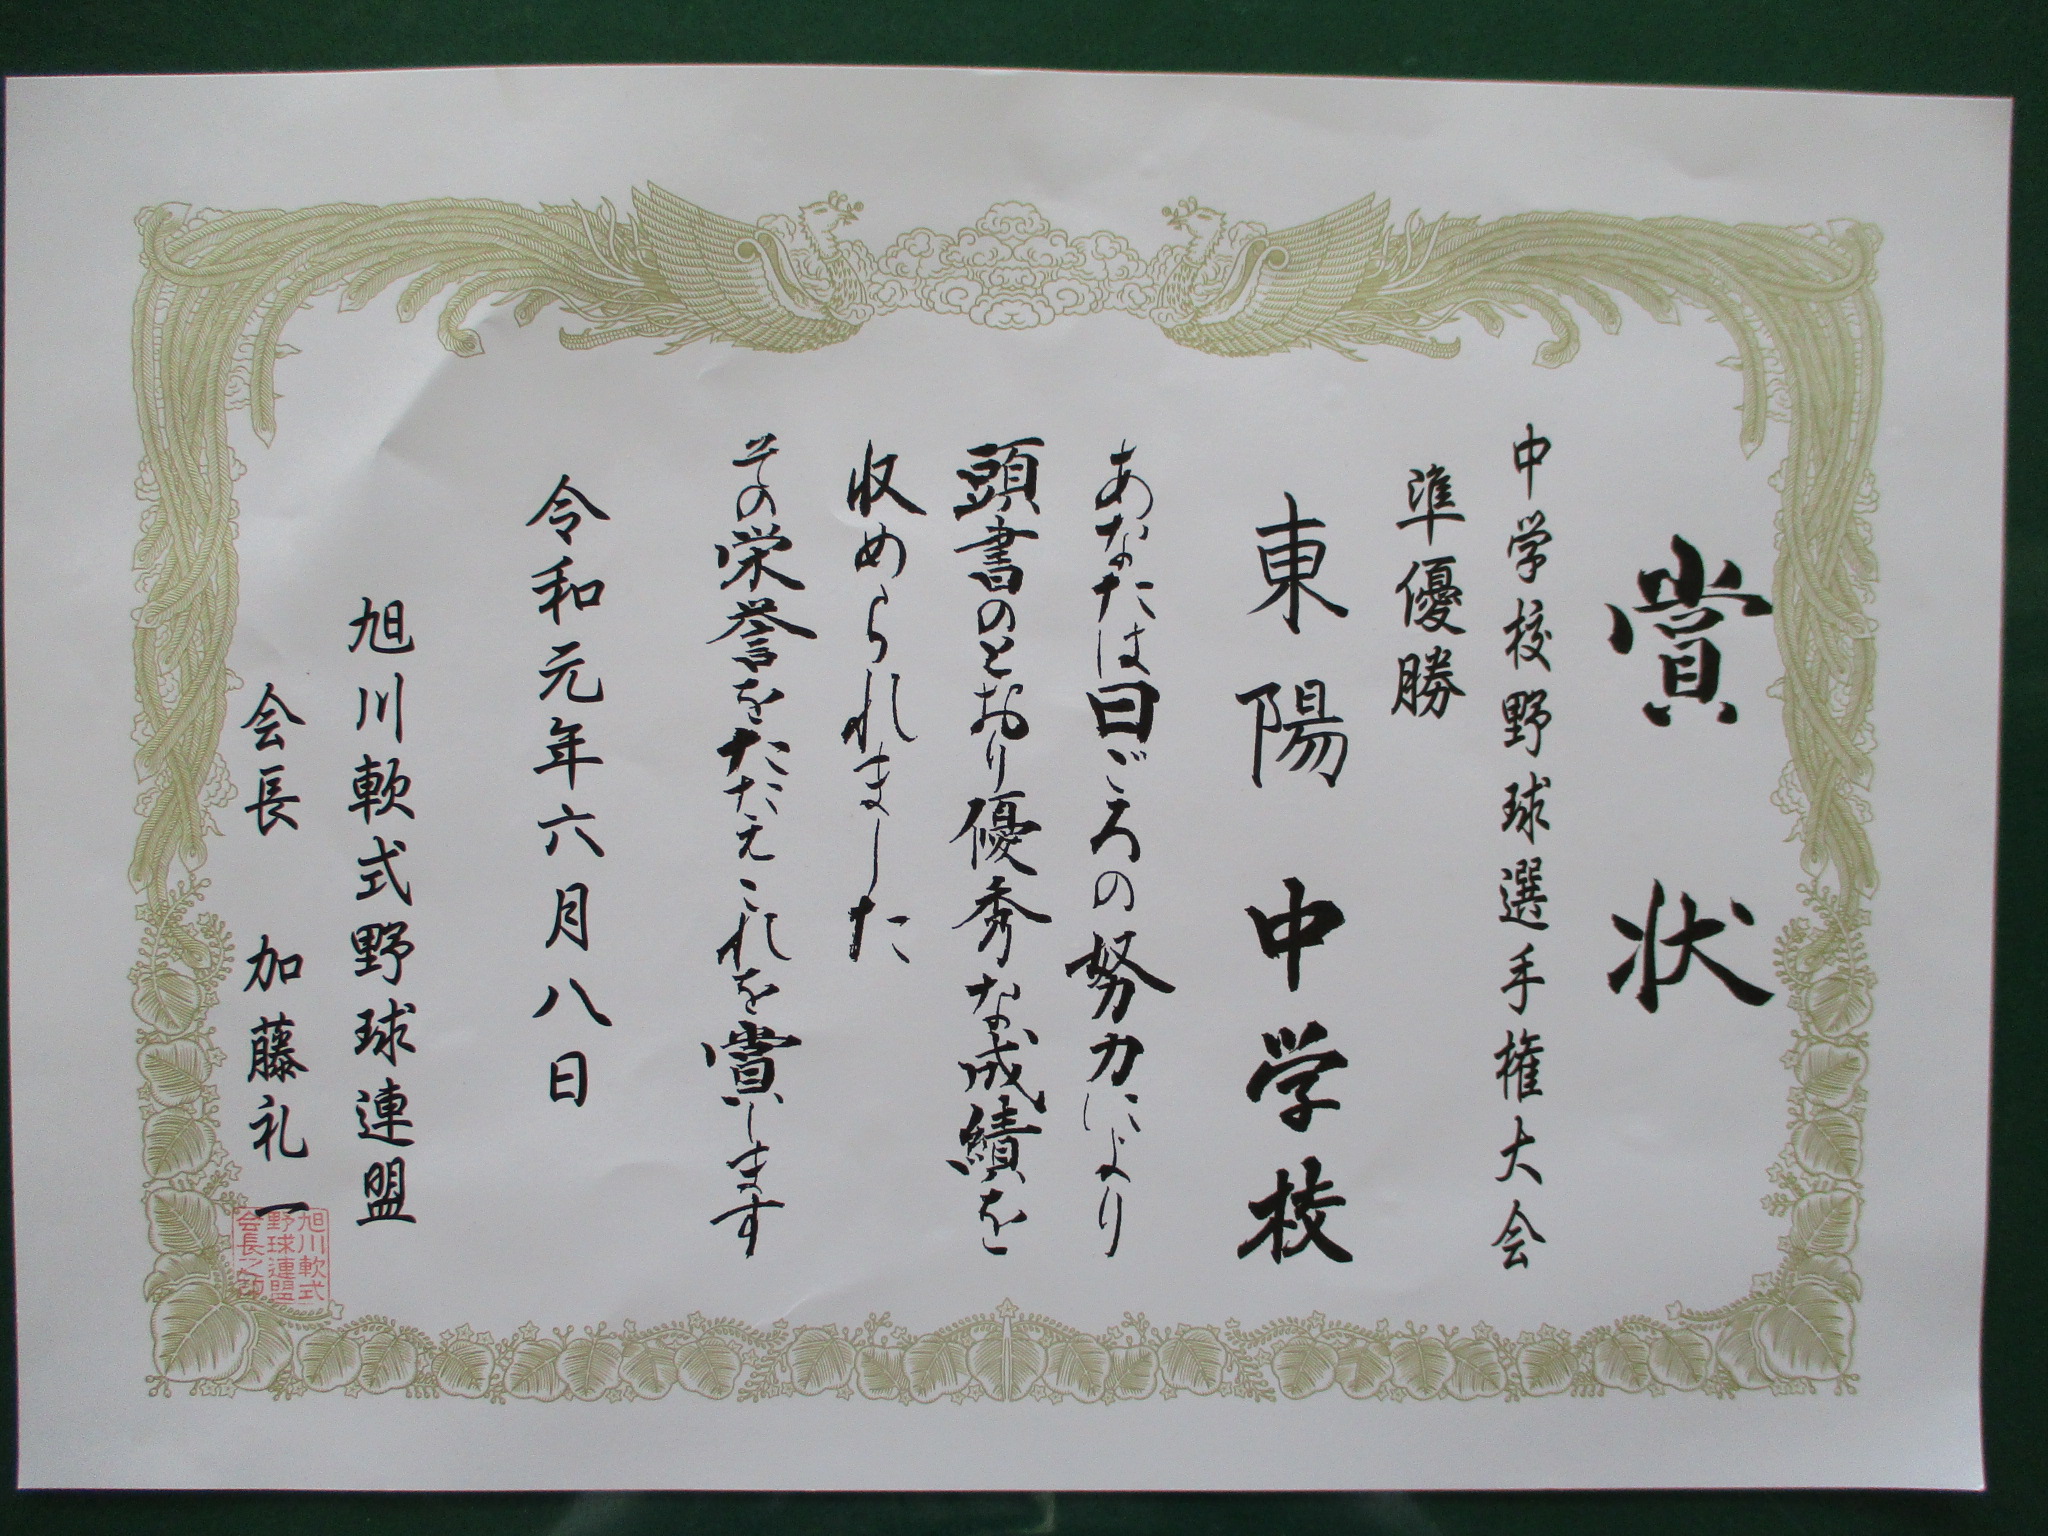 賞状
中学校野球選手権大会
準優勝
東陽中学校
あなたは日ごろの努力により
頭書のとおり優秀な成績を
収められました
その栄誉をたたえこれを賞します
令和元年六月八日
旭川軟式野球連盟
会長 加藤礼一
旭川軟式
野球連盟
会長之印